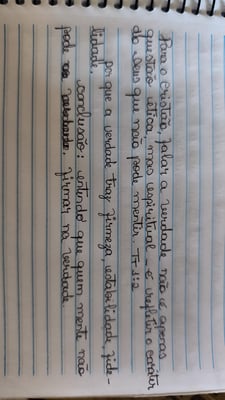 Para o cristão, falar a verdade não é apenas
questão ética, mas espiritual - é refletir o caráter
do Deus que não pode mentir. Tt 1:2
por que a verdade traz firmeza, estabilidade, fide-
lidade.
conclusão: entendo que quem mente não
pode firmar na verdade.